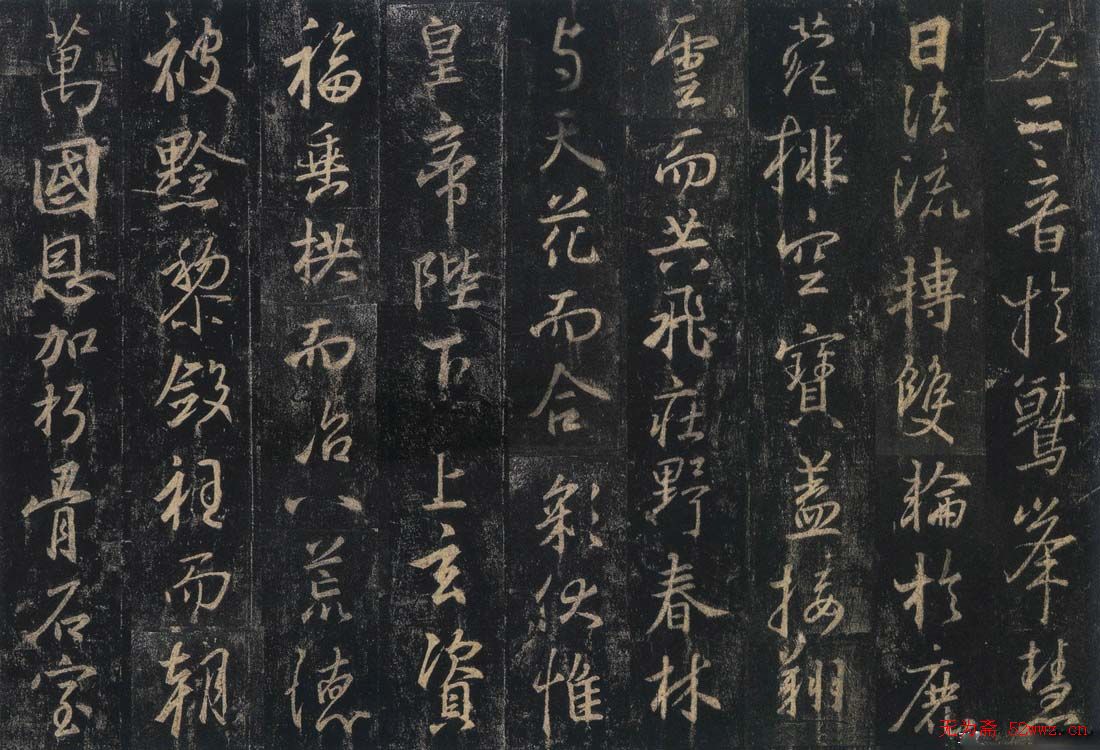 交二音於鷲峯慧
日法流轉雙輪於鹿
菀排空寶蓋接翔
雲而共飛莊野春林
与天花而合彩伏惟
皇帝陛下上玄資
福垂拱而治八荒德
被黔黎斂衽而朝
萬國恩加朽骨石室
无为斋 52wwz.cn